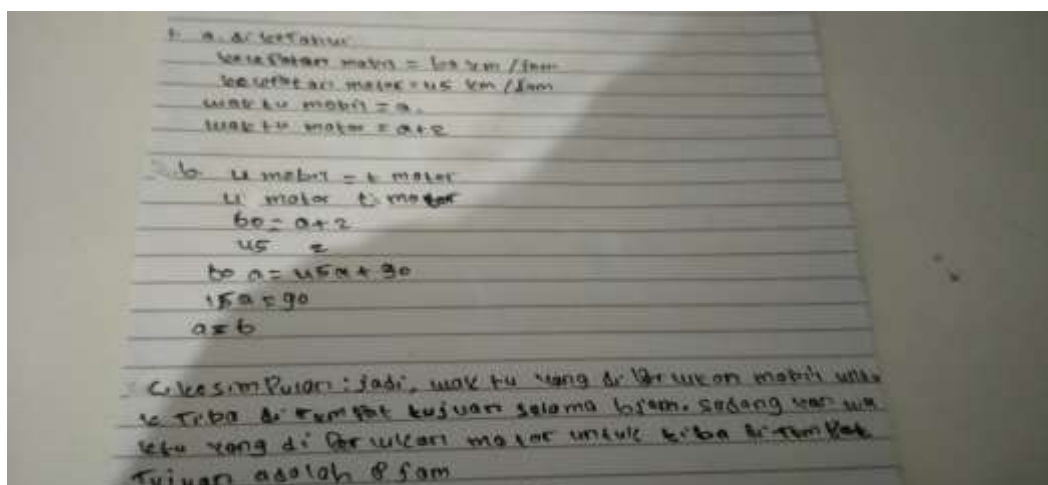 1. a. diketahui
kecepatan mobil = 60 km/jam
kecepatan motor = 45 km/jam
waktu mobil = a.
waktu motor = a+2
b. u mobil = t motor
u motor t motor
60 = a+2
45 2
60 a = 45a + 90
15a = 90
a = 6
C. kesimpulan : jadi, waktu yang di perlukan mobil untu
k Tiba di Tempat tujuan selama 6 jam. sedang kan wa
ktu yang di perlukan motor untuk tiba di Tempat
Tujuan adalah 8 jam